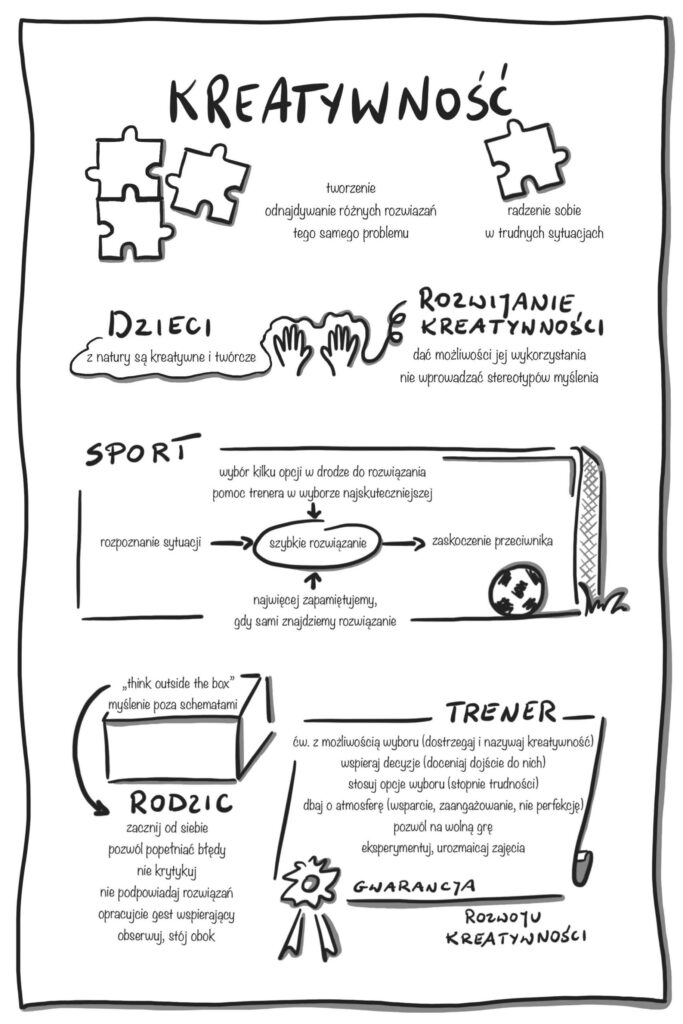 KREATYWNOŚĆ
tworzenie
odnajdywanie różnych rozwiazań
tego samego problemu
radzenie sobie
w trudnych sytuacjach
DZIECI
z natury są kreatywne i twórcze
ROZWIJANIE
KREATYWNOŚCI
dać możliwości jej wykorzystania
nie wprowadzać stereotypów myślenia
SPORT
wybór kilku opcji w drodze do rozwiązania
pomoc trenera w wyborze najskuteczniejszej
rozpoznanie sytuacji
szybkie rozwiązanie
zaskoczenie przeciwnika
najwięcej zapamiętujemy,
gdy sami znajdziemy rozwiązanie
„think outside the box"
myślenie poza schematami
RODZIC
zacznij od siebie
pozwól popełniać błędy
nie krytykuj
nie podpowiadaj rozwiązań
opracujcie gest wspierający
obserwuj, stój obok
TRENER
ćw. z możliwością wyboru (dostrzegaj i nazywaj kreatywność)
wspieraj decyzje (doceniaj dojście do nich)
stosuj opcje wyboru (stopnie trudności)
dbaj o atmosferę (wsparcie, zaangażowanie, nie perfekcję)
pozwól na wolną grę
eksperymentuj, urozmaicaj zajęcia
GWARANCJA
ROZWOJU
KREATYWNOŚCI